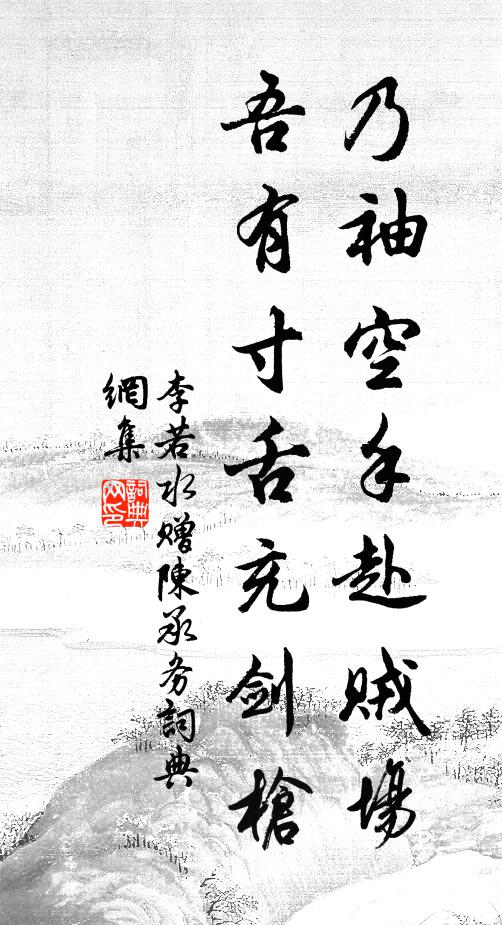 乃袖空手赴賊場
吾有寸舌充劍槍
李若水贈陳承务詞典
網集
詞典网印